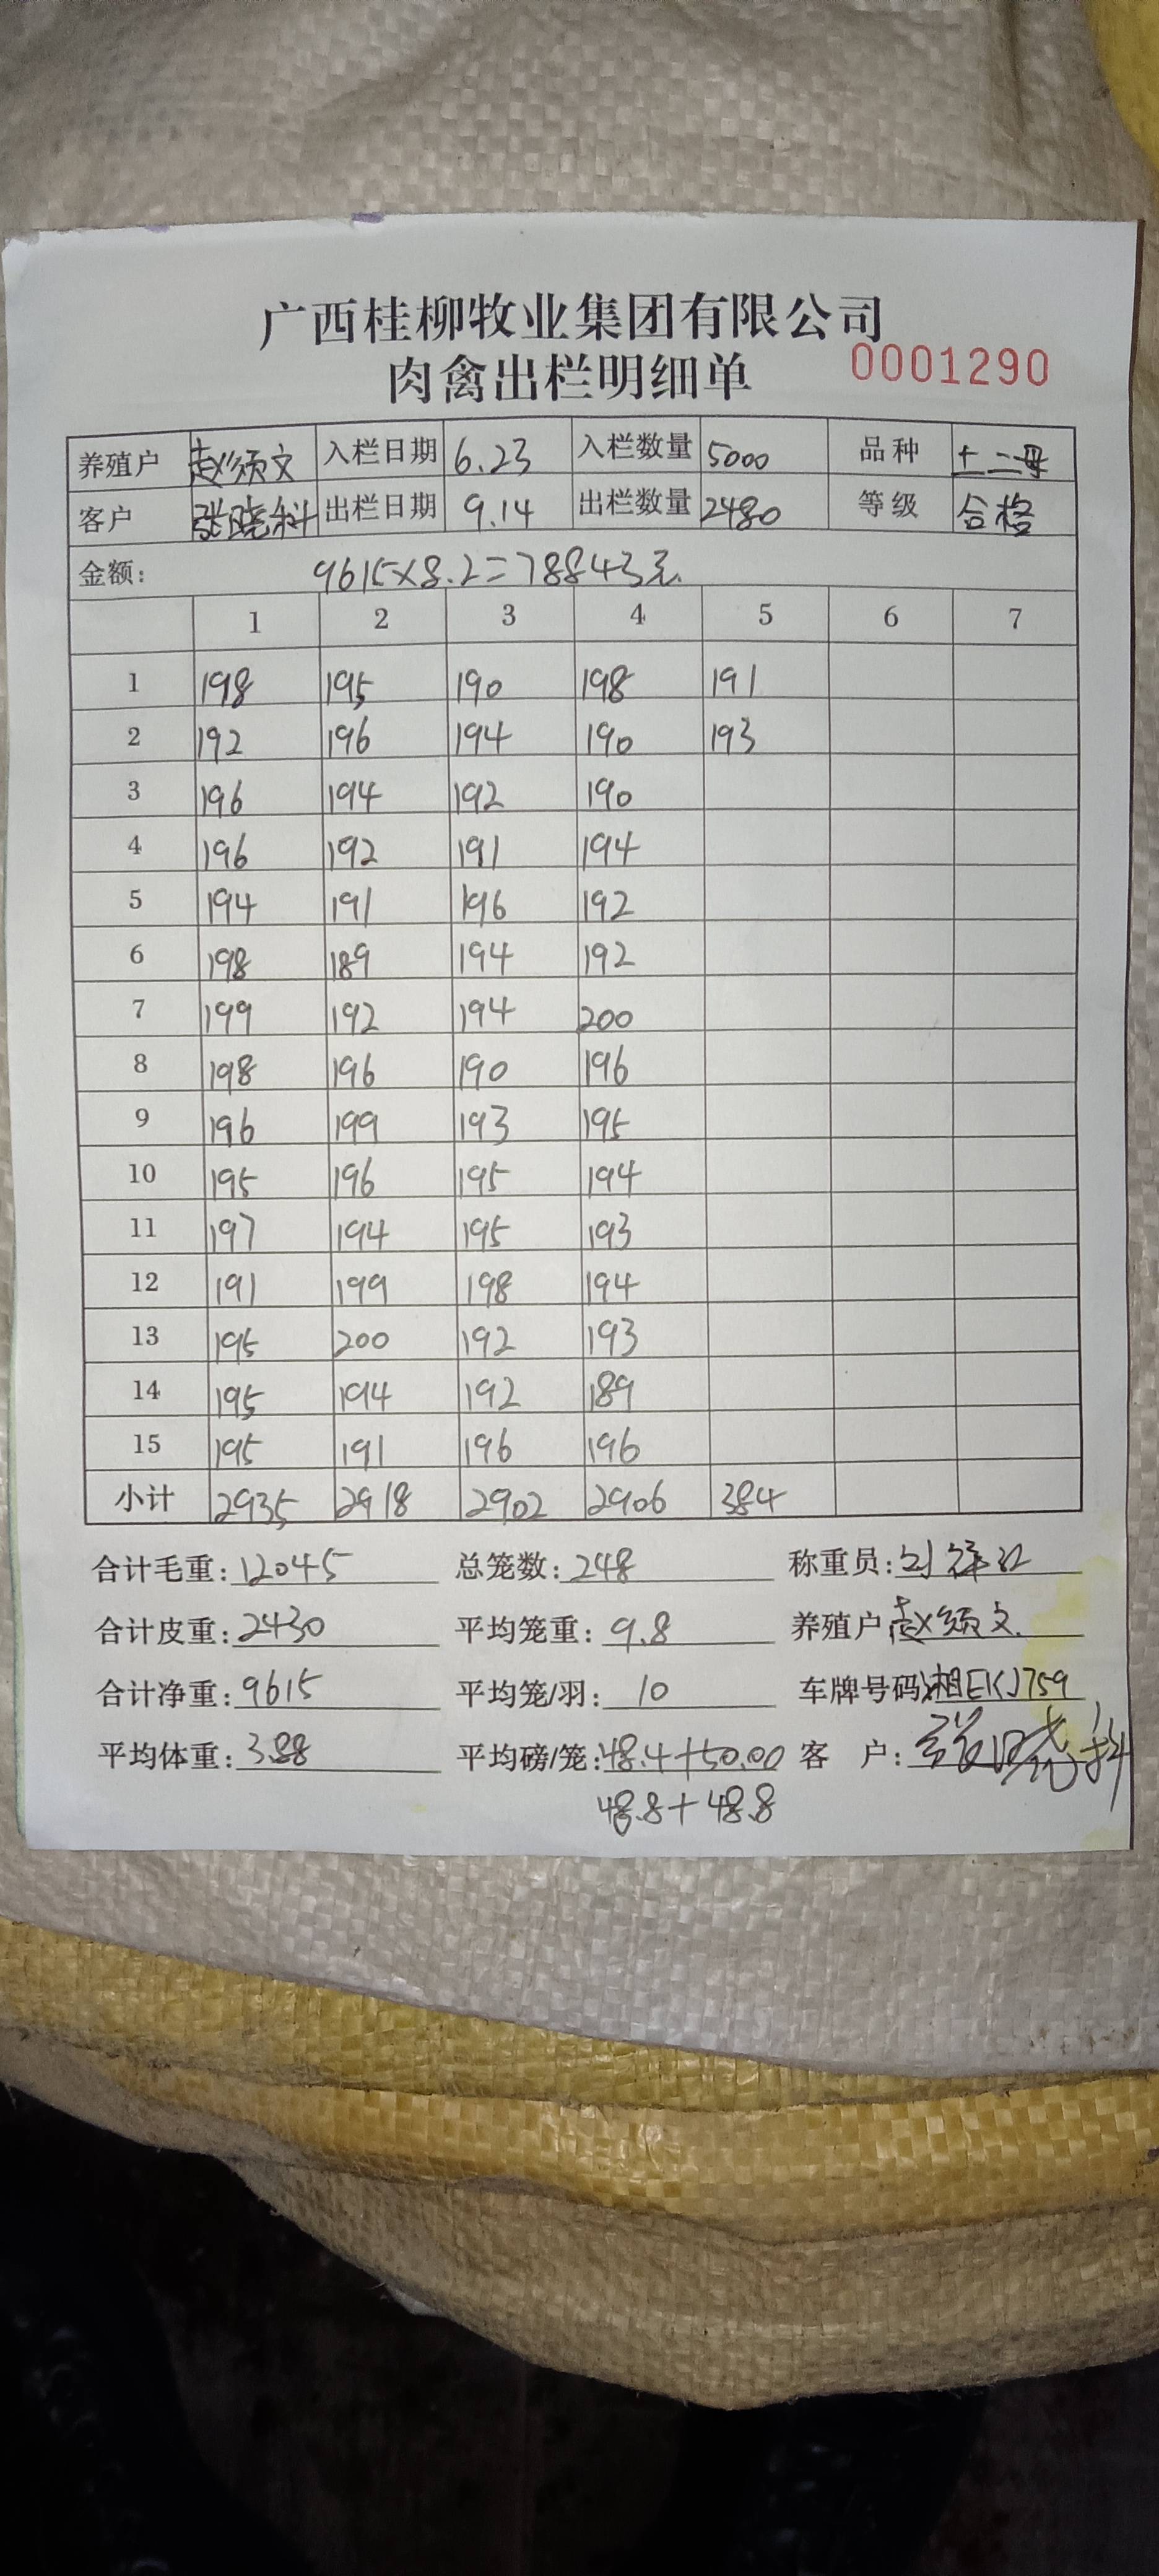 广西桂柳牧业集团有限公司
肉禽出栏明细单 0001290
养殖户 赵须文 入栏日期 6.23 入栏数量 5000 品种 土二母
客户 张晓科 出栏日期 9.14 出栏数量 2480 等级 合格
金额: 9615×8.2=78843元.
1 2 3 4 5 6 7
1 198 195 190 198 191
2 192 196 194 190 193
3 196 194 192 190
4 196 192 191 194
5 194 191 196 192
6 198 189 194 192
7 199 192 194 200
8 198 196 190 196
9 196 199 193 195
10 195 196 195 194
11 197 194 195 193
12 191 199 198 194
13 195 200 192 193
14 195 194 192 189
15 195 191 196 196
小计 2935 2918 2902 2906 384
合计毛重: 12045 总笼数: 248 称重员:
合计皮重: 2430 平均笼重: 9.8 养殖户 赵须文.
合计净重: 9615 平均笼/羽: 10 车牌号码 湘EKJ759
平均体重: 3.88 平均磅/笼: 48.4+50.00 客 户: 张晓科
48.8+48.8